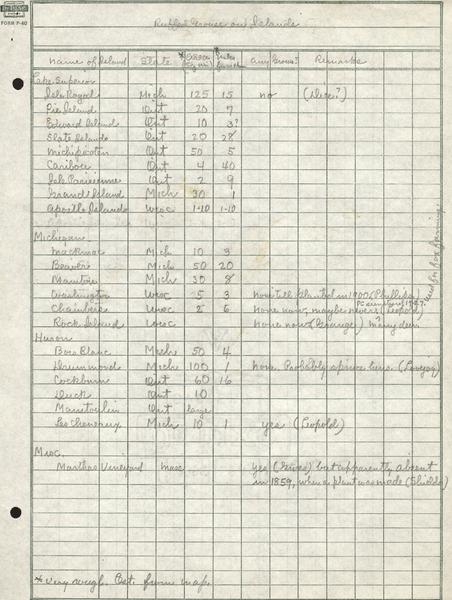 FORM P-40
Ruffed Grouse on Islands
Name of Island State *Area (sq mi) Miles from M Any Grouse? Remarks
Lake Superior
Isle Royal Mich 125 15 no (Dice?)
Pie Island Ont 20 7
Edward Island Ont 10 3?
Slate Islands Ont 20 28
Michipicoten Ont 50 5
Caribou Ont 4 40
Isle Parisienne Ont 2 9
Grand Island Mich 30 1
Apostle Islands Wisc 1-10 1-10
Michigan
Mackinac Mich 10 3
Beaver Mich 50 20
Manitou Mich 30 8
Washington Wisc 5 3 none till planted in 1900 (Phillips)
Chambers Wisc 2 6 none now, maybe never (Leopold)
Rock Island Wisc none now (Grange) many deer
Huron
Bois Blanc Mich 50 4
Drummond Mich 100 1 none. Probably a few. (Lovejoy)
Cockburn Ont 60 16
Duck Ont 10
Manitoulin Ont large
Les Cheneaux Mich 10 1 yes (Leopold)
Misc.
Marthas Vineyard Mass yes (Gross) but apparently absent
in 1859, when a plant was made (Shields)
* Very rough. Est. from map.